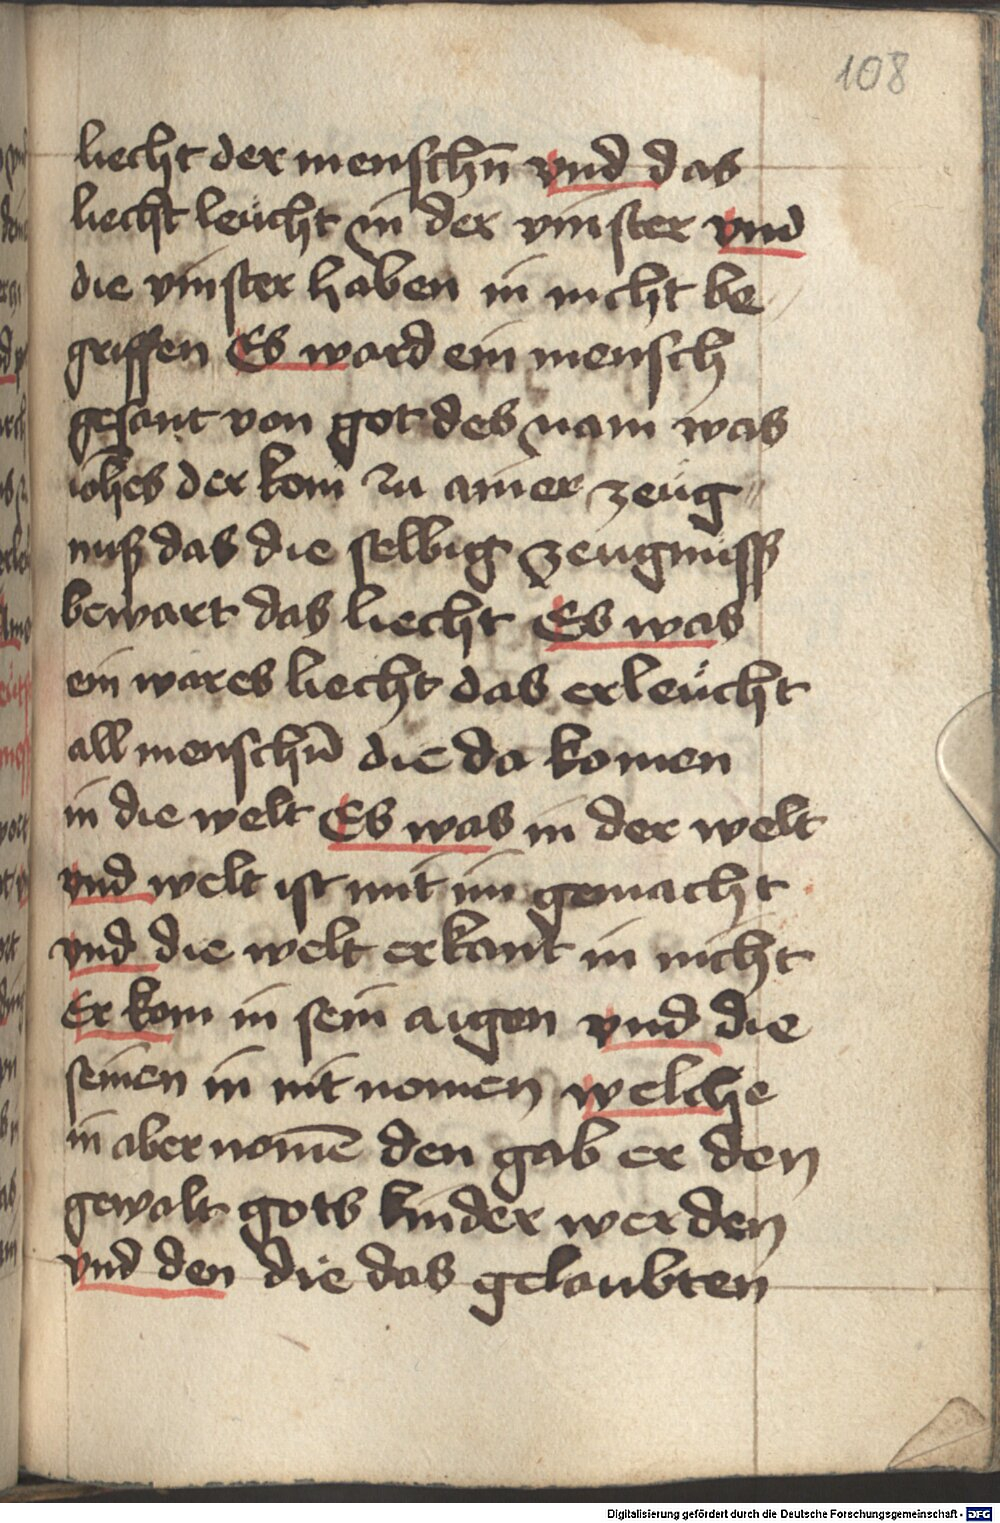 108
liecht der menschn̄ vnd das
liecht leücht in der vinster vnd
die vinster haben in nicht be
griffen Es ward ein mensch
gesant von got des nam was
ioh̄es der kom zu ainer zeüg
nuß das die selbig zeugnuss
bewart das liecht Es was
ein wares liecht das erleücht
all menschn̄ die da komen
in die welt Es was in der welt
vnd welt ist mit im gemacht
vnd die welt erkant in nicht
Er kom in sein aigen vnd die
seinen in nit nomen welche
in aber nom̄e den gab er den
gewalt gots kinder werden
vnd den die das gelaubten
Digitalisierung gefördert durch die Deutsche Forschungsgemeinschaft - DFG